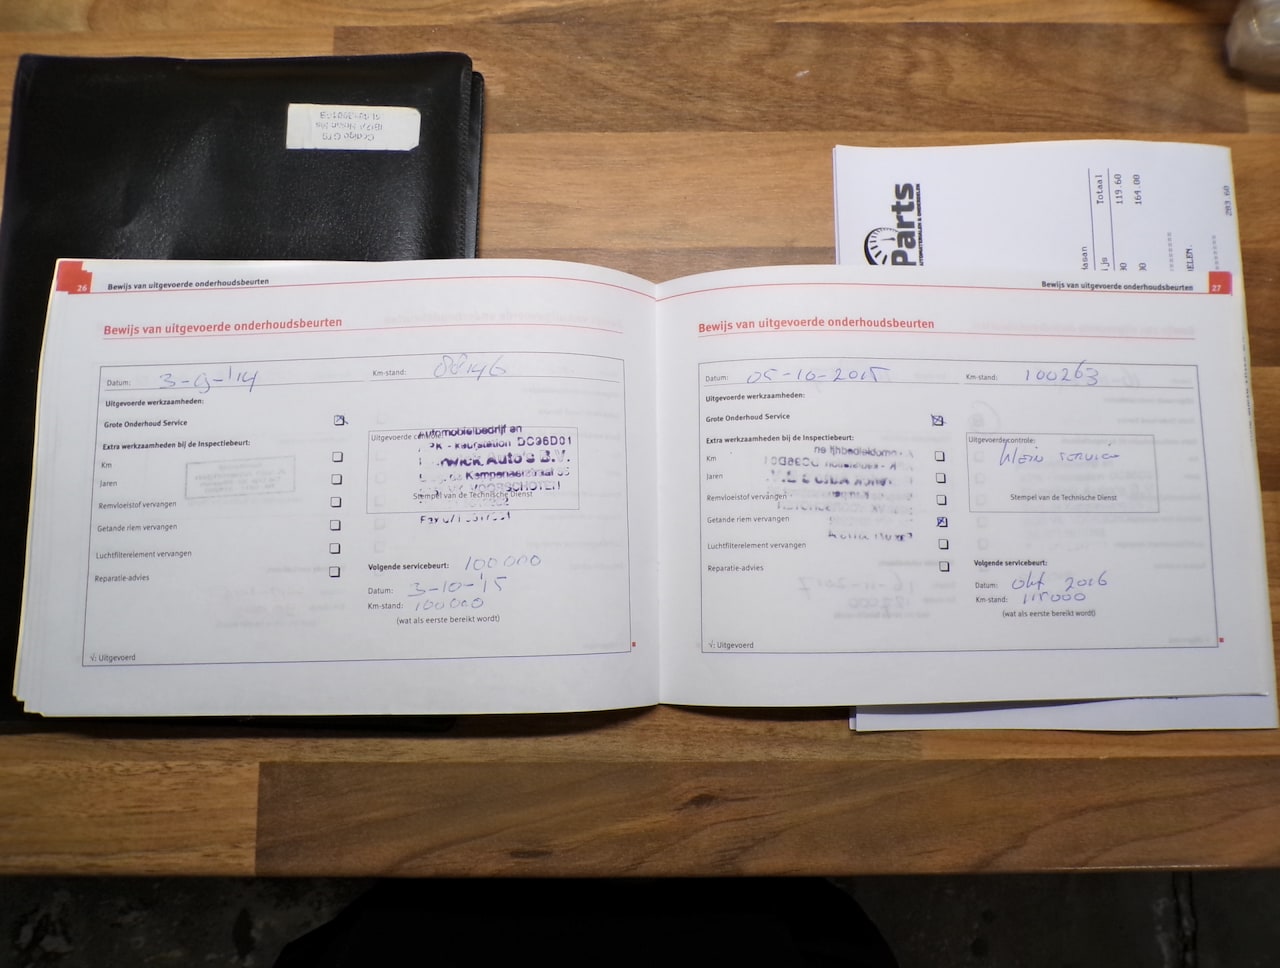 26 Bewijs van uitgevoerde onderhoudsbeurten
Bewijs van uitgevoerde onderhoudsbeurten
Datum: 3-9-'14 Km-stand: 88146
Uitgevoerde werkzaamheden:
Grote Onderhoud Service
Extra werkzaamheden bij de Inspectiebeurt:
Km
Jaren
Remvloeistof vervangen
Getande riem vervangen
Luchtfilterelement vervangen
Reparatie-advies
Uitgevoerde
Automobielbedrijf en
- keurstation DC96D01
Auto's B.V.
Kempenaerstraat
VOORSCHOTEN
Stempel van de Technische Dienst
Volgende servicebeurt: 100000
Datum: 3-10-'15
Km-stand: 100000
(wat als eerste bereikt wordt)
√: Uitgevoerd
Bewijs van uitgevoerde onderhoudsbeurten 27
Bewijs van uitgevoerde onderhoudsbeurten
Datum: 05-10-2015 Km-stand: 100263
Uitgevoerde werkzaamheden:
Grote Onderhoud Service
Extra werkzaamheden bij de Inspectiebeurt:
Km
Jaren
Remvloeistof vervangen
Getande riem vervangen
Luchtfilterelement vervangen
Reparatie-advies
Uitgevoerde controle:
klein service
Stempel van de Technische Dienst
Volgende servicebeurt:
Datum: okt 2016
Km-stand: 115000
(wat als eerste bereikt wordt)
√: Uitgevoerd
Parts
AUTOMATERIALEN & ONDERDELEN
Totaal
119.60
164.00
283.60